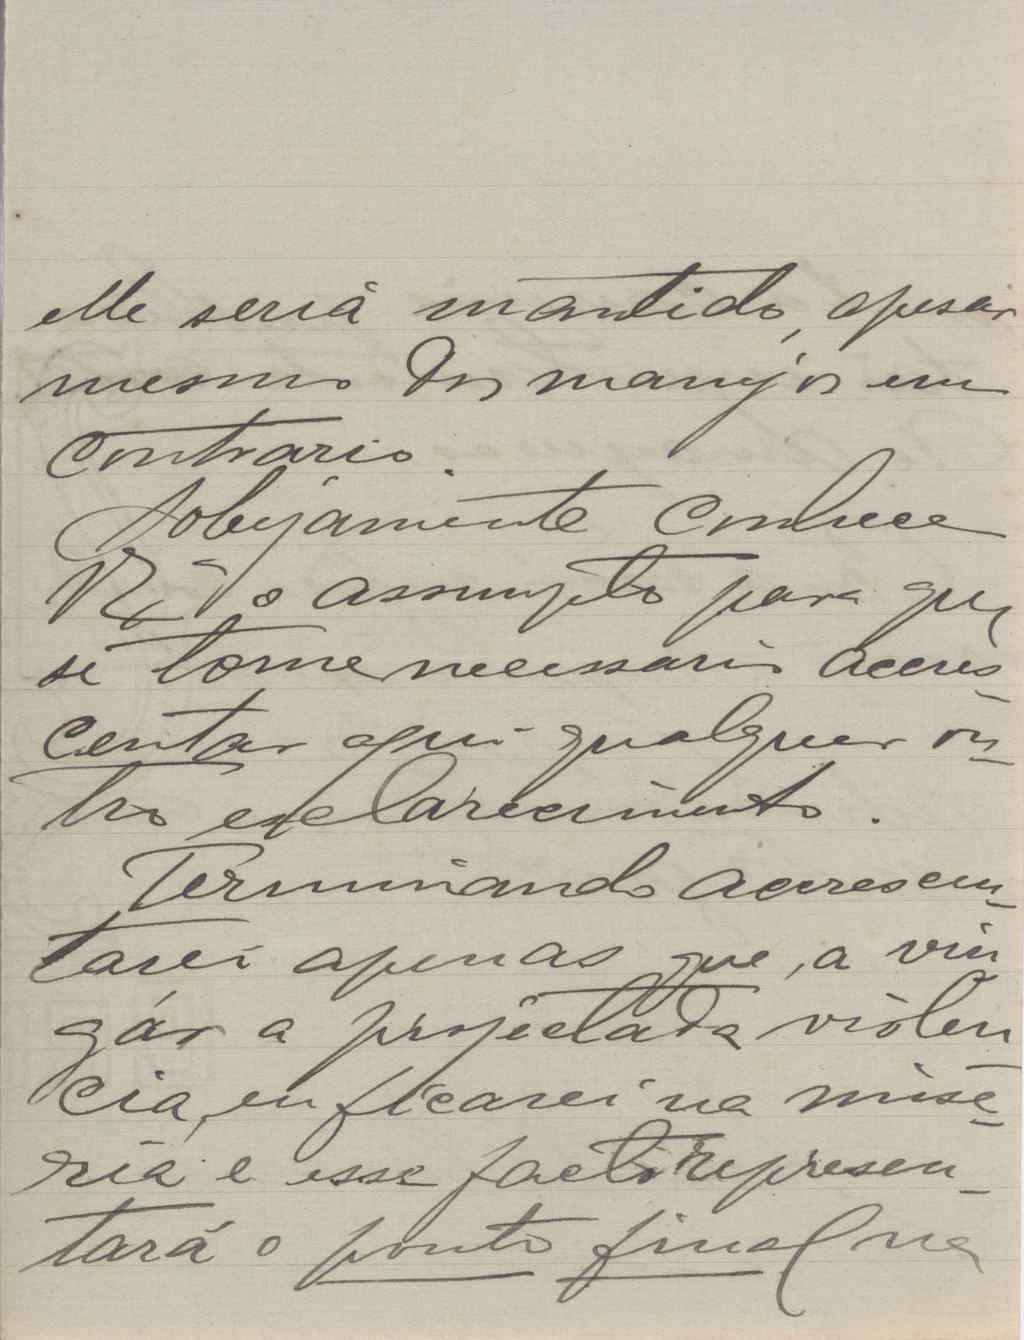 elle seriá mantido, apesar
mesmo dos manejos em
contrario.
Sobejamente conhece
V. Ex.ª o assumpto para que
se torne necessario accres-
centar aqui qualquer ou-
tro esclarecimento.
Terminando accrescen-
tarei apenas que, a vin
gár a projectada violen
cia, eu ficarei na misé-
ria e esse facto represen-
tará o ponto final na